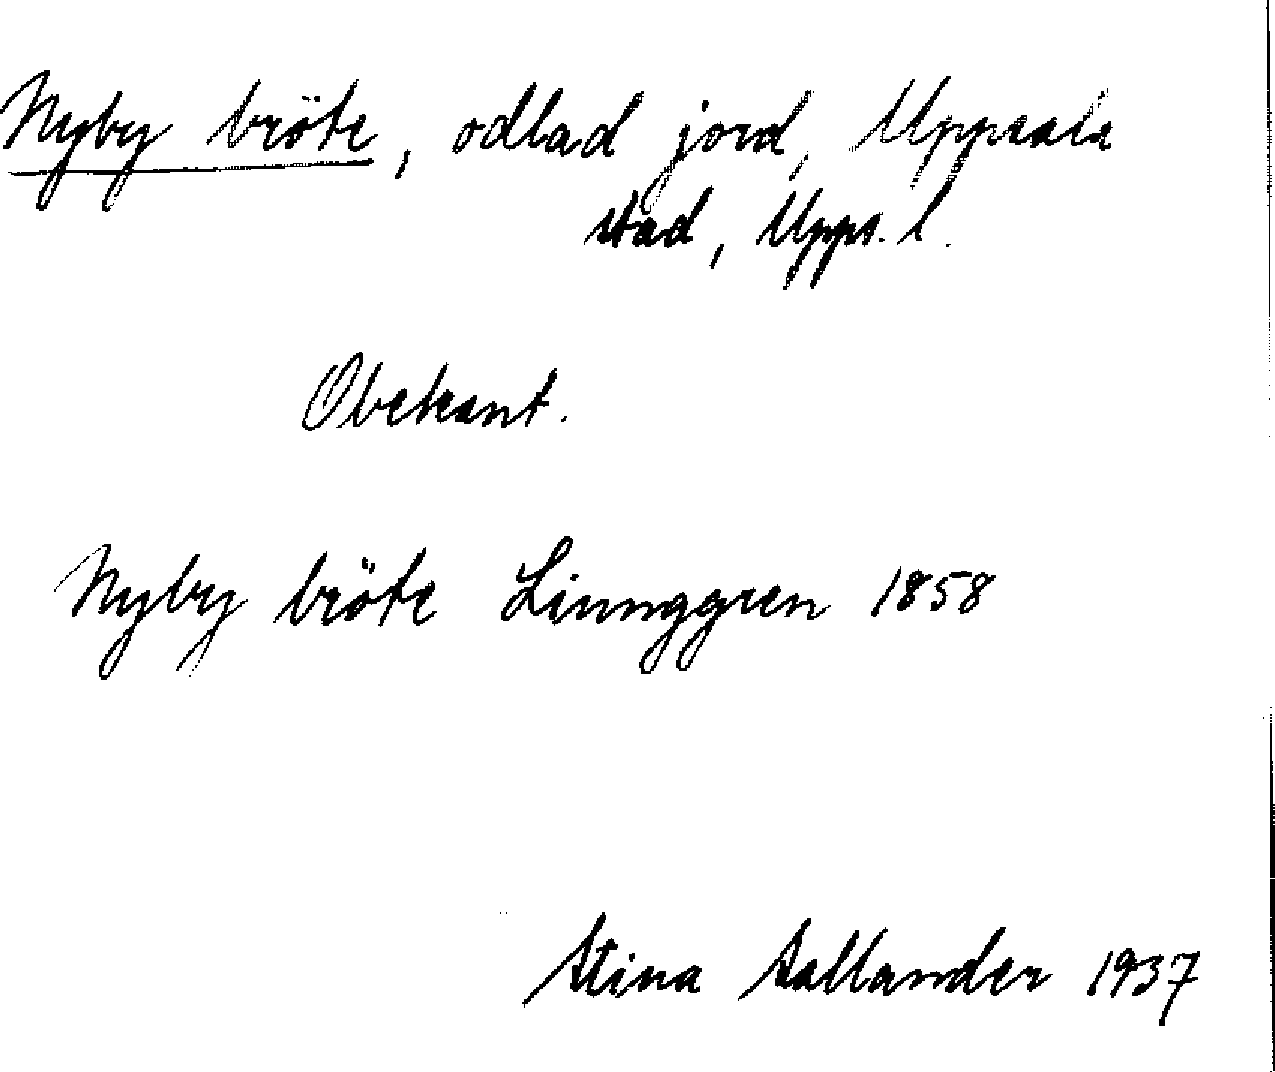 Nyby bröte, odlad jord, Uppsala
stad, Upps. l.
Obekant.
Nyby bröte Linnggren 1858
Stina Sallander 1937